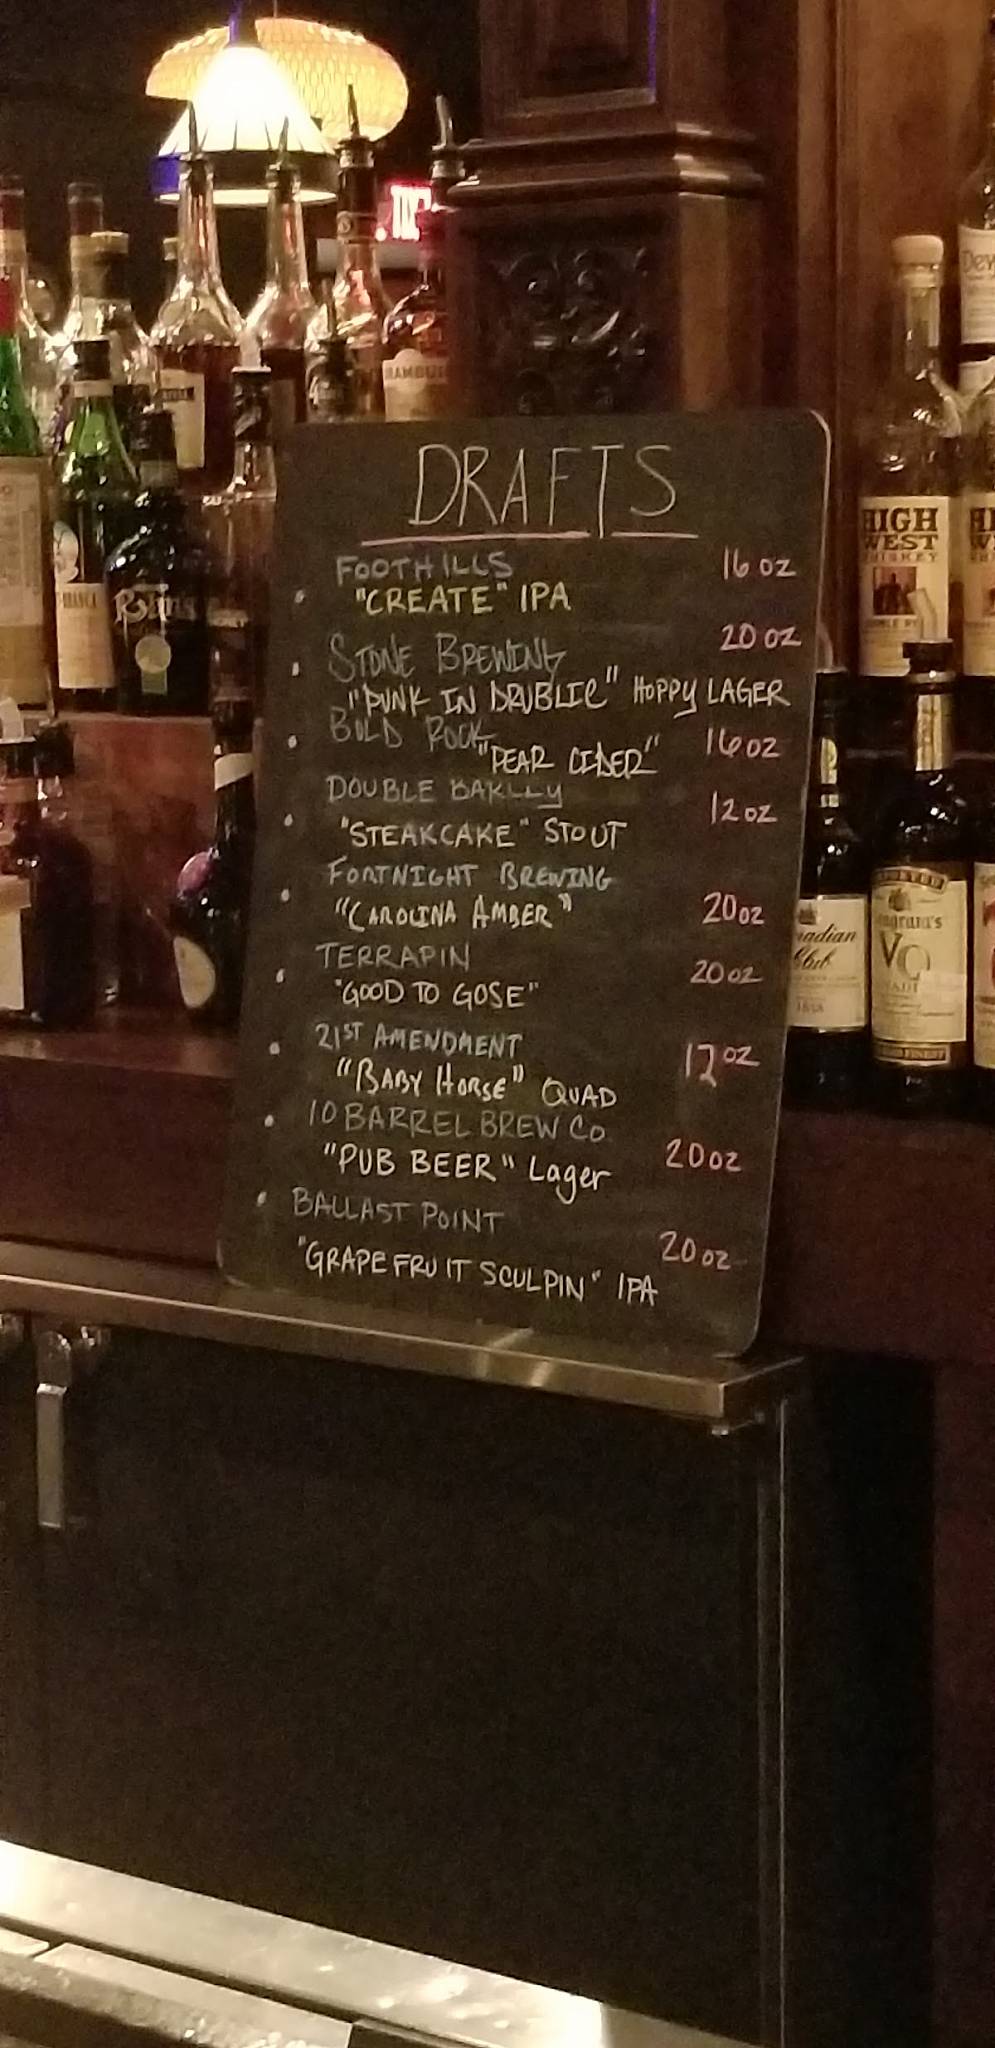 DRAFTS
FOOTHILLS 16 oz
"CREATE" IPA
STONE BREWING 20 oz
"PUNK IN DRUBLIC" HOPPY LAGER
BOLD ROCK
"PEAR CIDER" 16 oz
DOUBLE BARLLY
"STEAKCAKE" STOUT 12 oz
FORTNIGHT BREWING
"CAROLINA AMBER" 20 oz
TERRAPIN 20 oz
"GOOD TO GOSE"
21ST AMENDMENT
"BABY HORSE" QUAD 12 oz
10 BARREL BREW Co.
"PUB BEER" Lager 20 oz
BALLAST POINT
"GRAPEFRUIT SCULPIN" IPA 20 oz
HIGH
WEST
WHISKEY
Club
1858
VO